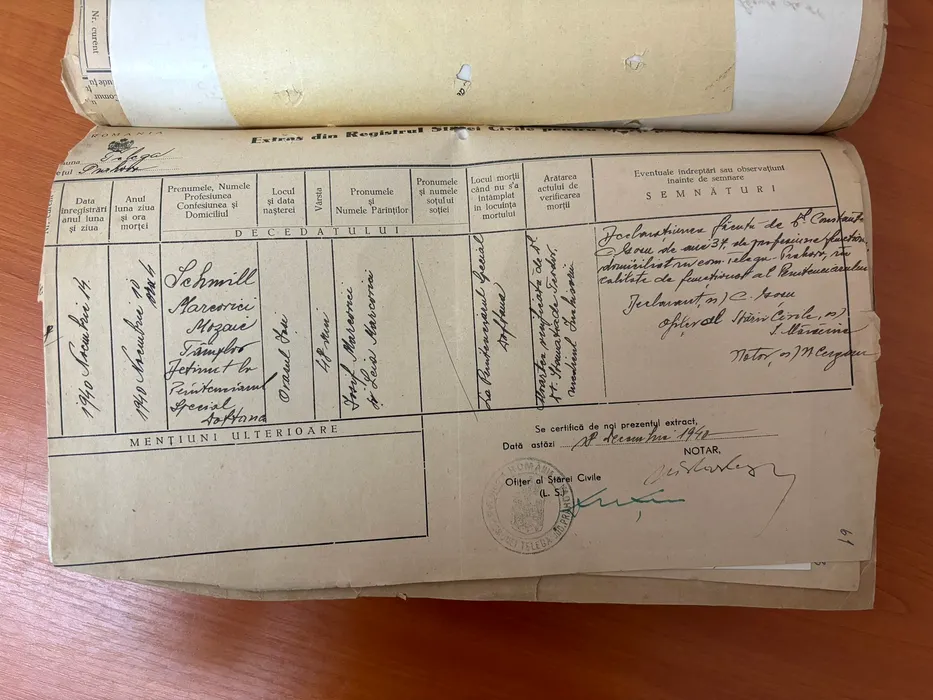 Nr. curent
ROMANIA
Extras din Registrul Stărei Civile pentru
Telega
Prahova
Data înregistrări anul luna și ziua
Anul luna ziua și ora morței
Prenumele, Numele Profesiunea Confesiunea și Domiciliul
Locul și data nașterei
Vârsta
Pronumele și Numele Părinților
Pronumele și numele soțului soției
Locul morții când nu s'a întâmplat in locuința mortului
Arătarea actului de verificarea morții
Eventuale îndreptări sau observațiuni inainte de semnare
SEMNĂTURI
DECEDATULUI
1940 Noembrie 14
1940 Noembrie 10 ora 4
Schmill
Marcovici
Mozaic
Tâmplar
Deținut la
Penitenciarul
Special
Doftana
Orașul Iași
48 ani
Iosif Marcovici
și Leia Marcovici
La Penitenciarul Special
Doftana
Moartea verificată de Dl.
Dr. Teodor,
medicul Închisorii
Declarațiunea făcută de Dl Constantin
C. de ani 37, de profesiune funcționar
domiciliat în com. Telega-Prahova, în
calitate de funcționar al Penitenciarului
Declarant, ss) C.
Ofițer al Stării Civile, ss)
Notar, ss)
MENȚIUNI ULTERIOARE
Se certifică de noi prezentul extract,
Data astăzi 28 Decembrie 1940
NOTAR,
Ofițer al Stărei Civile
(L. S.)
ROMANIA
TELEGA JUD. PRAHOVA
19